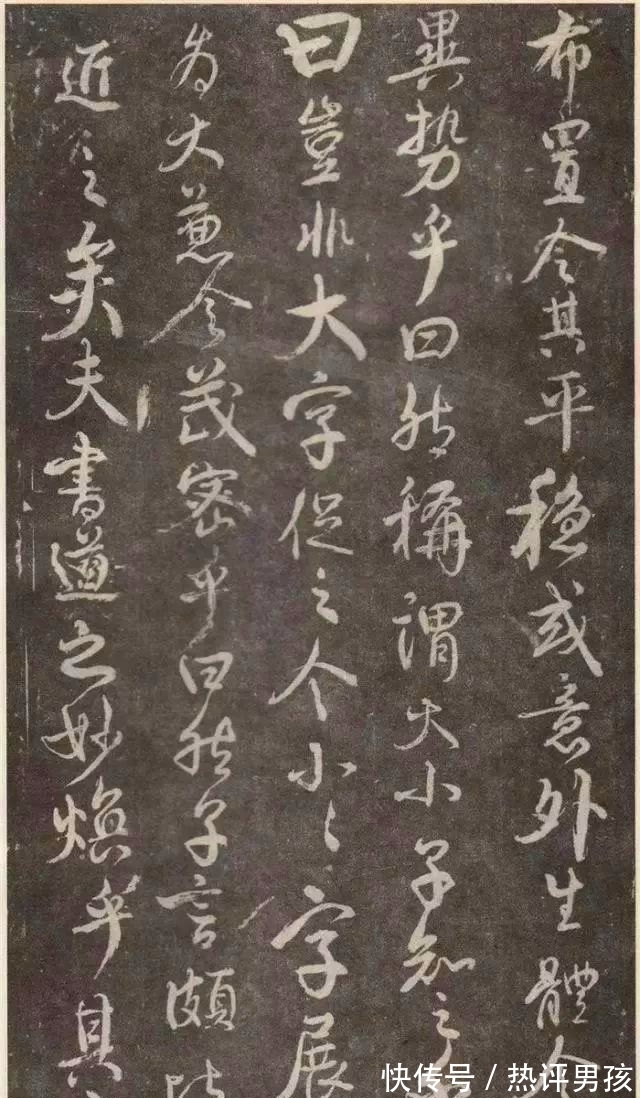 布置令其平穩或意外生體令
異势乎曰然稱謂大小子知之
曰豈非大字促之令小々字展
为大兼令茂密乎曰然子言頗
近之矣夫書道之妙煥乎其
快传号 / 热评男孩